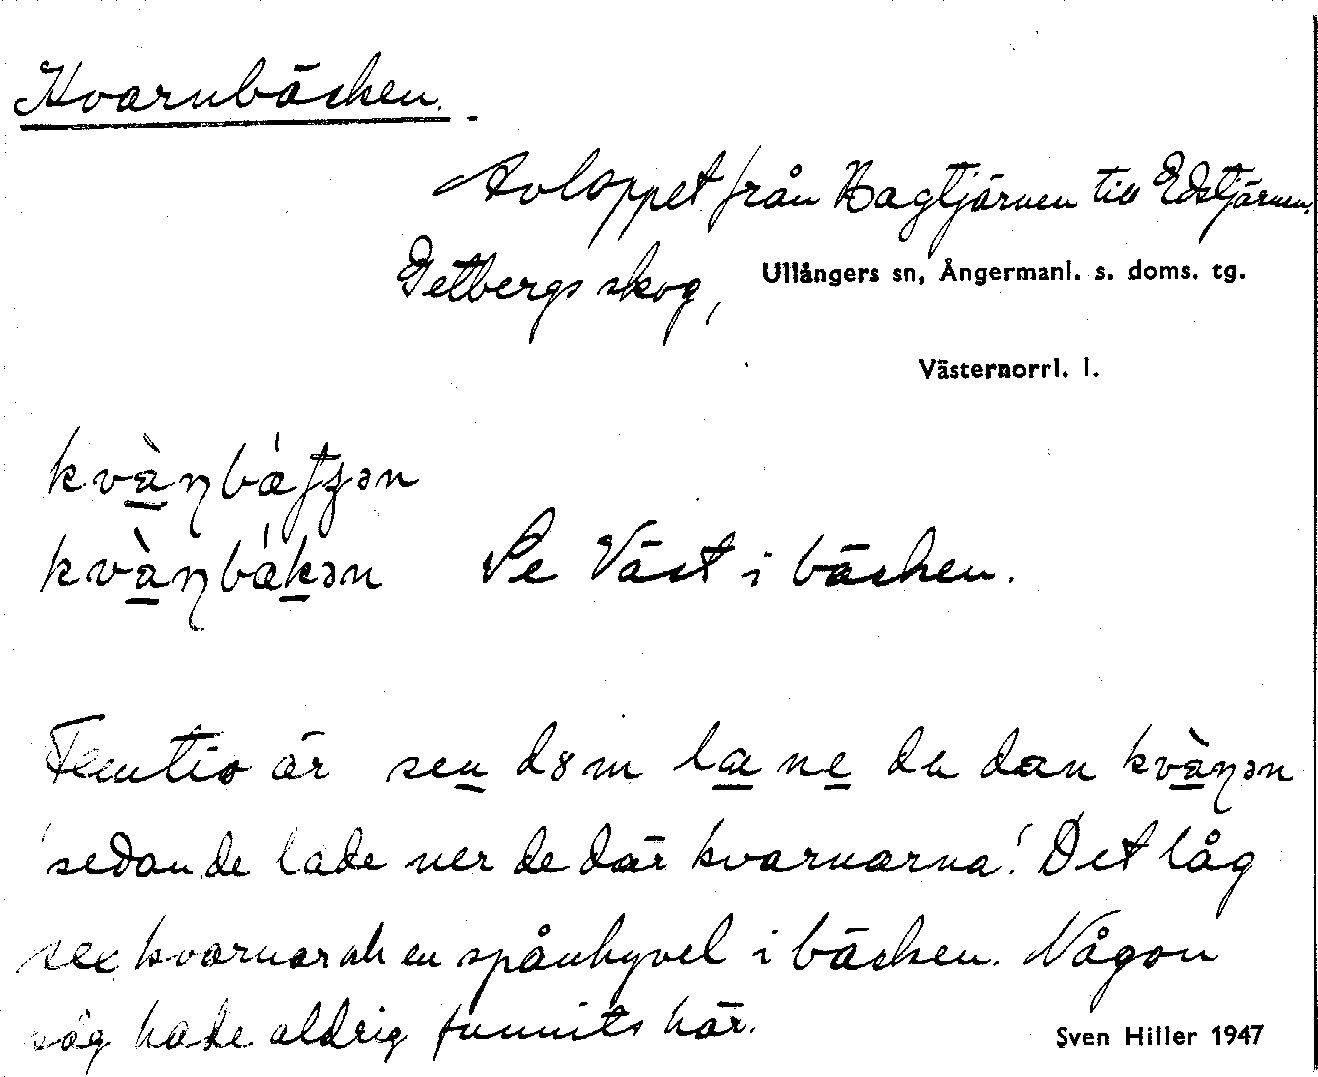 Kvarnbäcken.
Avloppet från Hagtjärnen till Edstjärnen,
Getbergs skog, Ullångers sn, Ångermanl. s. doms. tg.
Västernorrl. l.
kvàɳbáʃʒən
kvàɳbákən Se Väst i bäcken.
Femtio år sen dɵm læ ne de dan kvàɳən
'sedan de lade ner de där kvarnarna'. Det låg
sex kvarnar och en spånhyvel i bäcken. Någon
såg hade aldrig funnits här.
Sven Hiller 1947